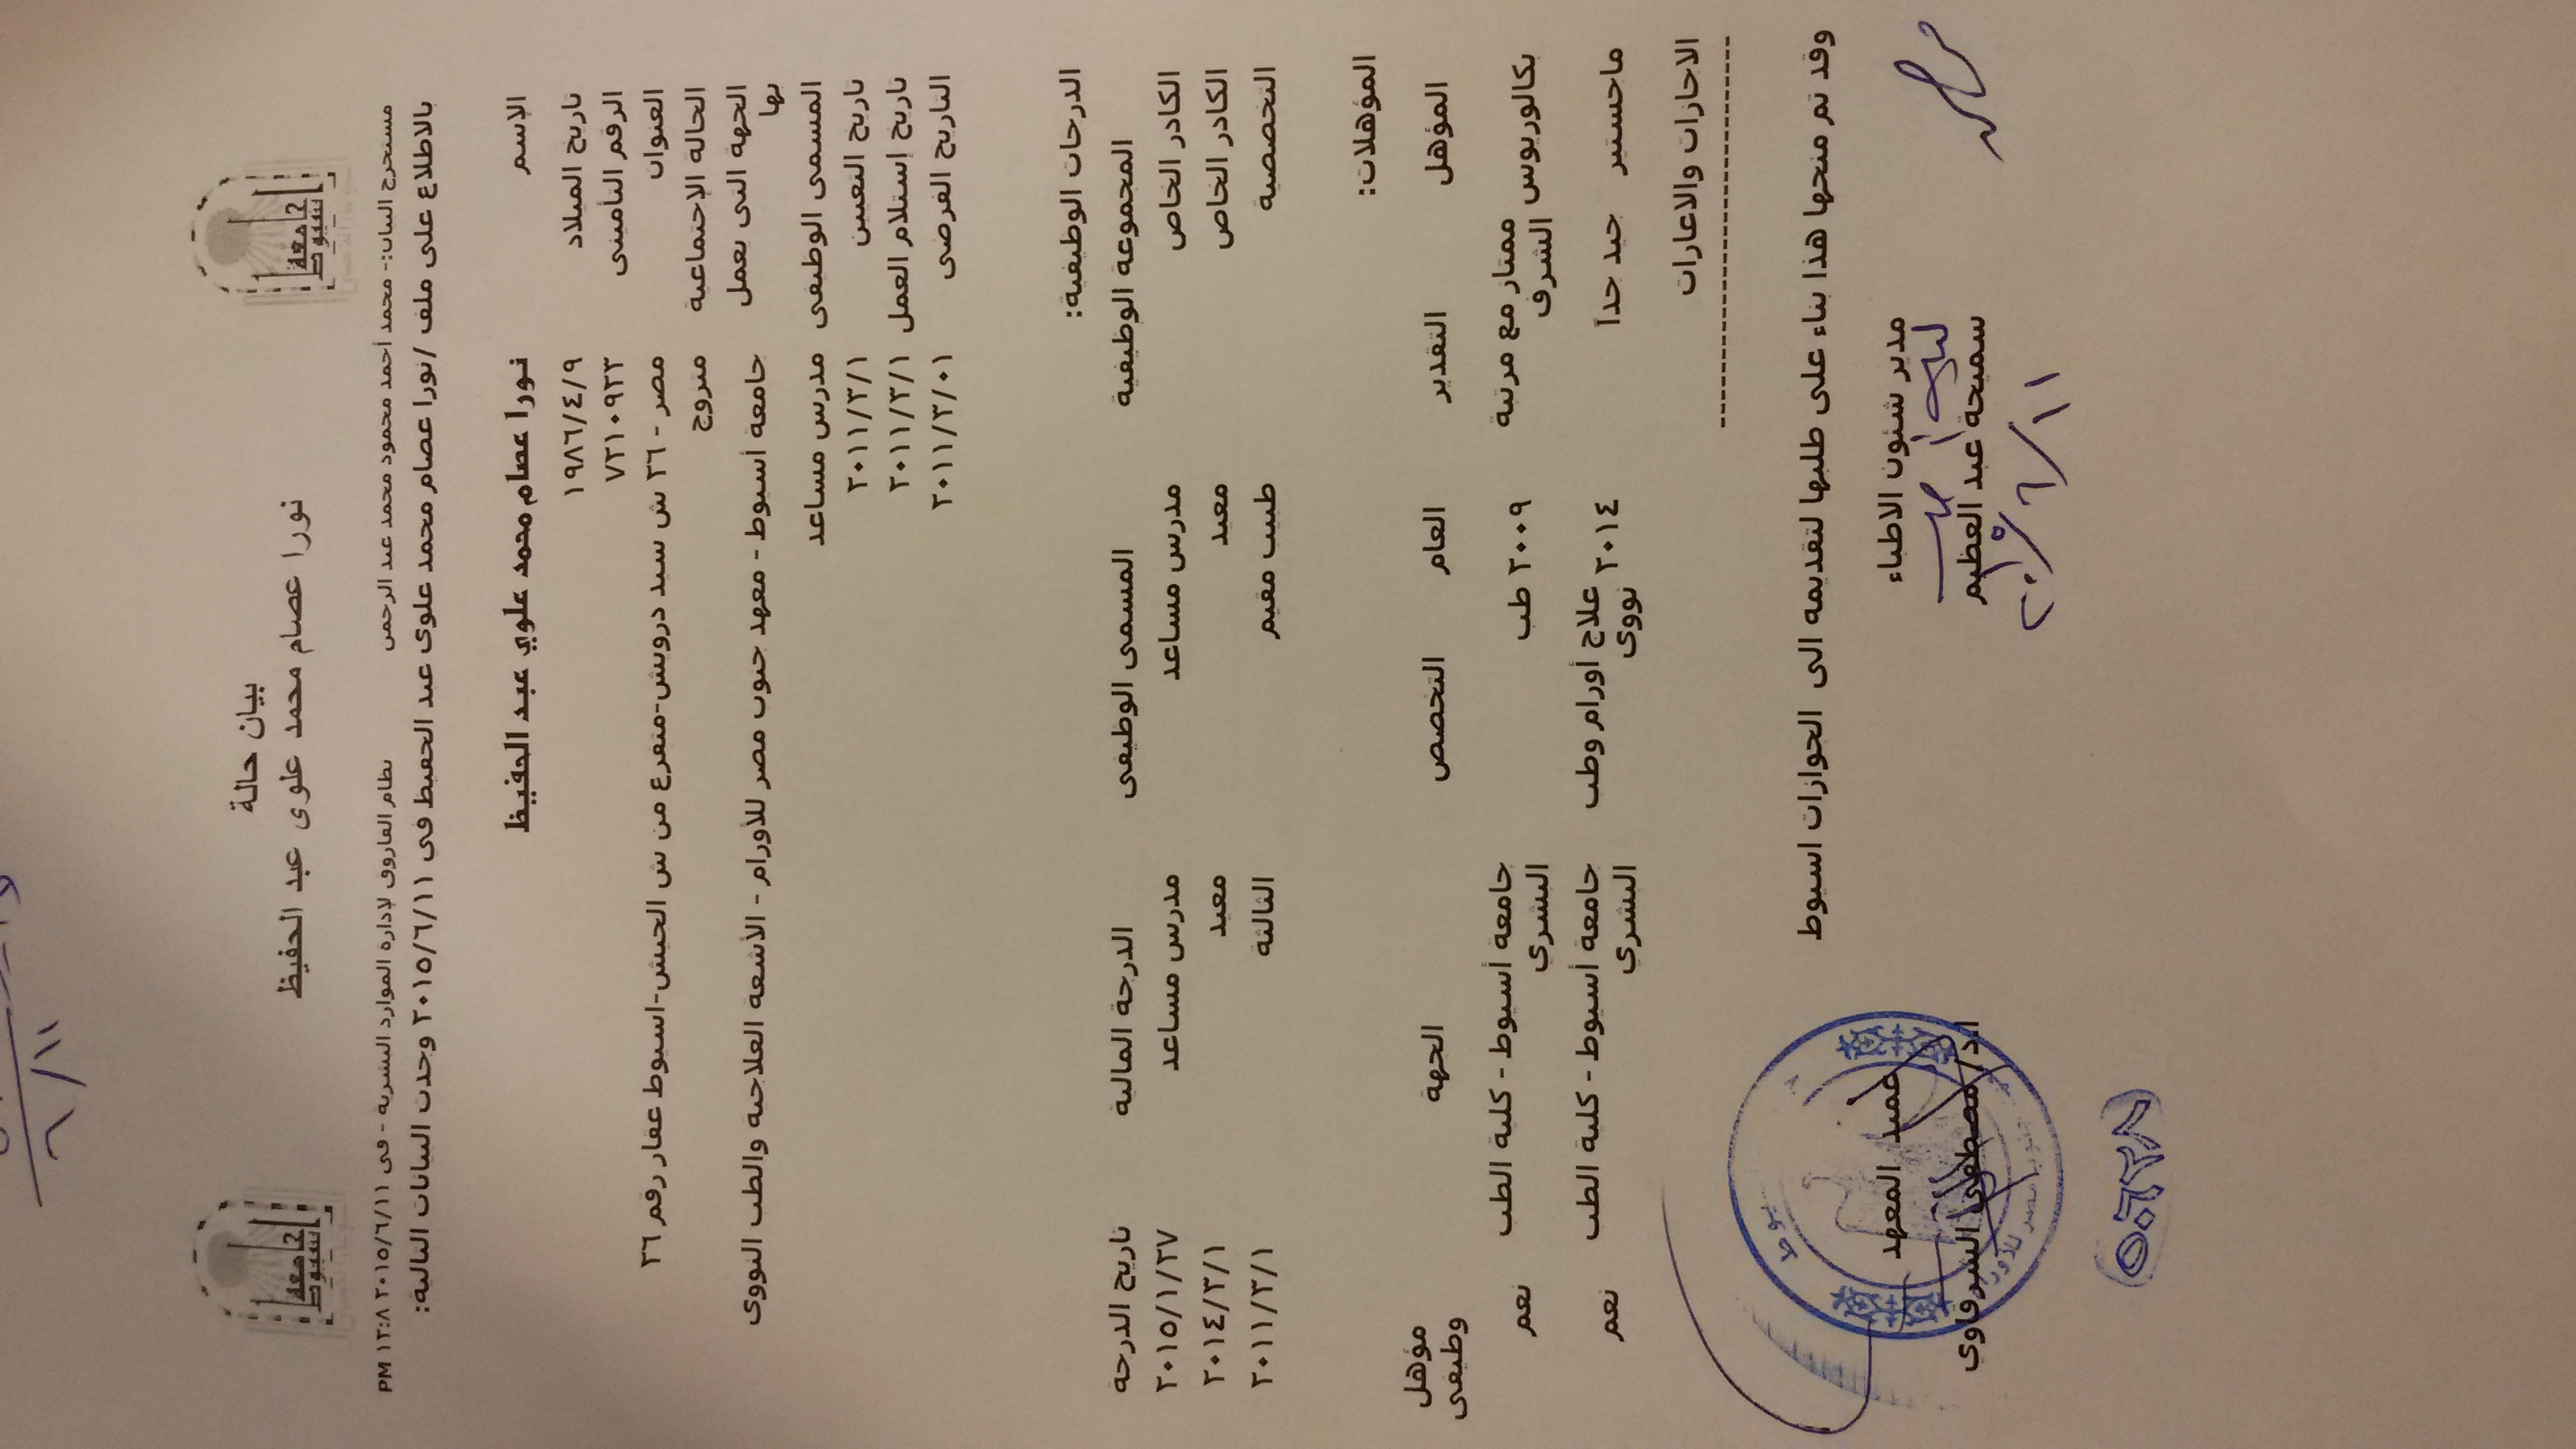 جامعة أسيوط
جامعة أسيوط
٦/١١
بيان حالة
نورا عصام محمد علوى عبد الحفيظ
مستخرج البيان:- محمد أحمد محمود محمد عبد الرحمن نظام الفاروق لإدارة الموارد البشرية - فى ٢٠١٥/٦/١١ ١٢:٠٨ PM
بالاطلاع على ملف /نورا عصام محمد علوى عبد الحفيظ فى ٢٠١٥/٦/١١ وجدت البيانات التالية:
الإسم نورا عصام محمد علوي عبد الحفيظ
تاريخ الميلاد ١٩٨٦/٤/٩
الرقم التأمينى ٧٣١٠٩٢٣
العنوان مصر - ٢٦ ش سيد درويش-متفرع من ش الجيش-اسيوط عقار رقم ٢٦
الحالة الإجتماعية متزوج
الجهة التى يعمل بها جامعة أسيوط - معهد جنوب مصر للأورام - الأشعة العلاجية والطب النووى
المسمى الوظيفى مدرس مساعد
تاريخ التعيين ٢٠١١/٣/١
تاريخ إستلام العمل ٢٠١١/٣/١
التاريخ الفرضى ٢٠١١/٣/٠١
الدرجات الوظيفية:
المجموعة الوظيفية المسمى الوظيفى الدرجة المالية تاريخ الدرجة
الكادر الخاص مدرس مساعد مدرس مساعد ٢٠١٥/١/٢٧
الكادر الخاص معيد معيد ٢٠١٤/٣/١
التخصصية طبيب مقيم الثالثة ٢٠١١/٣/١
المؤهلات:
المؤهل التقدير العام التخصص الجهة مؤهل وظيفى
بكالوريوس ممتاز مع مرتبة الشرف ٢٠٠٩ طب جامعة أسيوط - كلية الطب البشري نعم
ماجستير جيد جداً ٢٠١٤ علاج أورام وطب نووى جامعة أسيوط - كلية الطب البشري نعم
الاجازات والاعارات
وقد تم منحها هذا بناء على طلبها لتقديمه الى الجوازات اسيوط
مدير شئون الاطباء عميد المعهد
سميحة عبد العظيم أ.د/مصطفى الشرقاوي
٢٠١٥/٦/١١